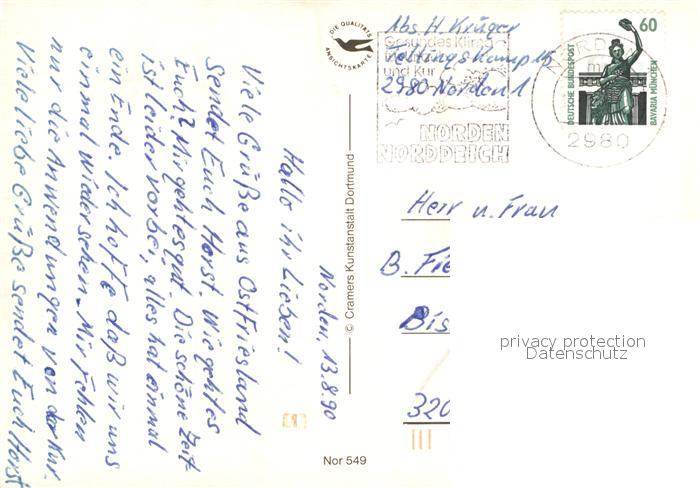 Norden, 13.8.90
Hallo ihr Lieben!
Viele Grüße aus Ostfriesland
sendet Euch Horst. Wie geht es
Euch? Mir geht es gut. Die schöne Zeit
ist leider vorbei, alles hat einmal
ein Ende. Ich hoffe daß wir uns
einmal wiedersehen. Mir fehlen
nur die Anwendungen von der Kur.
Viele liebe Grüße sendet Euch Horst
DIE QUALITÄTS
ANSICHTSKARTE
© Cramers Kunstanstalt Dortmund
Nor 549
Abs. H. Krüger
2980 Norden 1
Gesundes Klima
und Kur
NORDEN
NORDDEICH
NORDEN
2980
60
DEUTSCHE BUNDESPOST
BAVARIA MÜNCHEN
Herr u. Frau
B. Fre
Bis
320
privacy protection
Datenschutz